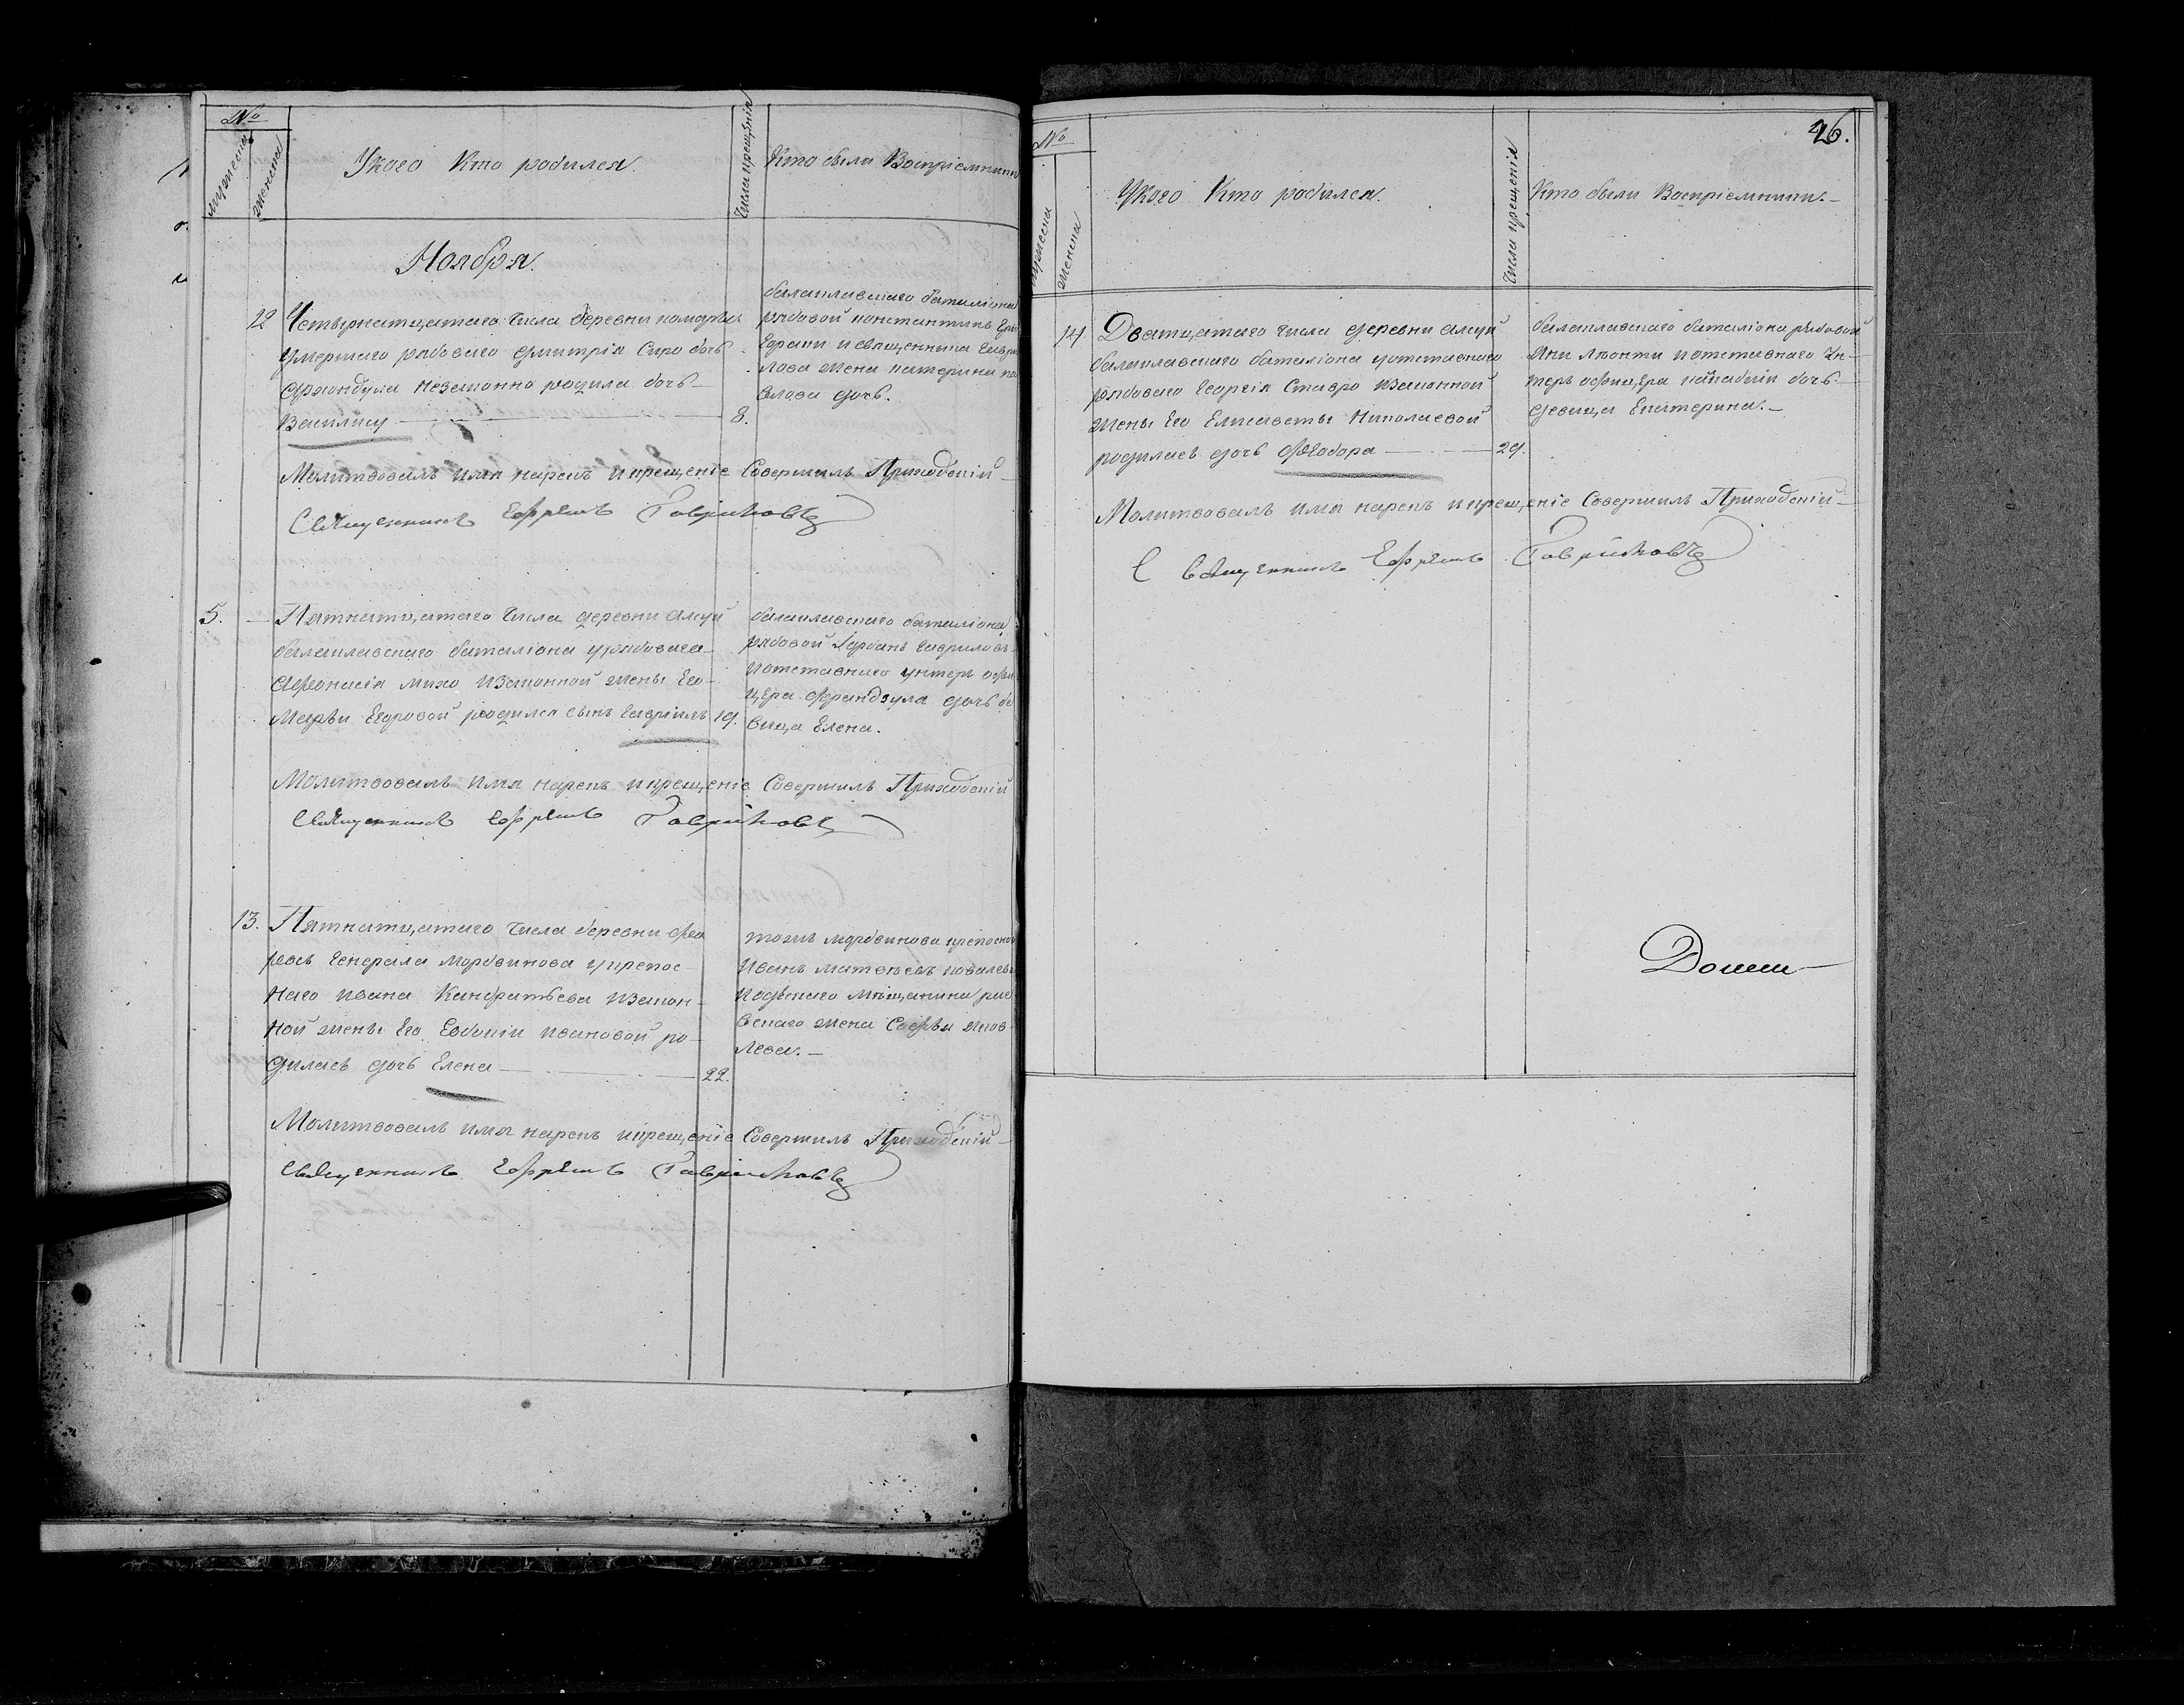 №
мужеска
женска
У кого Кто родился.
Числа крещенія
Кто были Воспріемники
Ноября.
12 Четырнатцатаго Числа деревни камары
умершаго рядоваго дмитрія Сиро дочь
незаконно родила дочь
Василису 8.
балаклавскаго баталіона
рядовой константинъ
и священника Гаври
лова жена катерина па
влова дочь.
Молитвовалъ имя нарекъ и крещеніе Совершилъ Приходскій
Священникъ Ефремъ Гавриловъ
5. Пятнатцатаго Числа деревни алсуй
балаклавскаго баталіона у рядоваго
Афонасія михо Изаконной жены Его
Маріи Егоровой родился сынъ Гавріилъ 19.
балаклавскаго баталіона
рядовой Гавриловъ
и отставнаго унтеръ офи
цера дочь дѣ
вица Елена.
Молитвовалъ имя нарекъ и крещеніе Совершилъ Приходскій
Священникъ Ефремъ Гавриловъ
13. Пятнатцатаго Числа деревни фео
Генерала мордвинова у крепос
наго ивана Кандратьева Изакон
ной жены Его Евдокіи ивановой ро
дилась дочь Елена 22.
тогожъ мордвинова крепосной
Иванъ матвѣевъ
мѣщанина
жена яков
лева.
Молитвовалъ имя нарекъ и крещеніе Совершилъ Приходскій
Священникъ Ефремъ Гавриловъ
26.
№
мужеска
женска
У кого Кто родился.
Числа крещенія
Кто были Воспріемники.
14. Дватцатаго числа деревни алсуй
балаклавскаго баталіона у отставнаго
рядоваго Георгія Ставро Изаконной
жены Его Елисаветы Николаевой
родилась дочь Феодора 29.
балаклавскаго баталіона рядовой
Яни и отставнаго Ун
теръ офицера дочь
девица Екатерина.
Молитвовалъ имя нарекъ и крещеніе Совершилъ Приходскій
Священникъ Ефремъ Гавриловъ